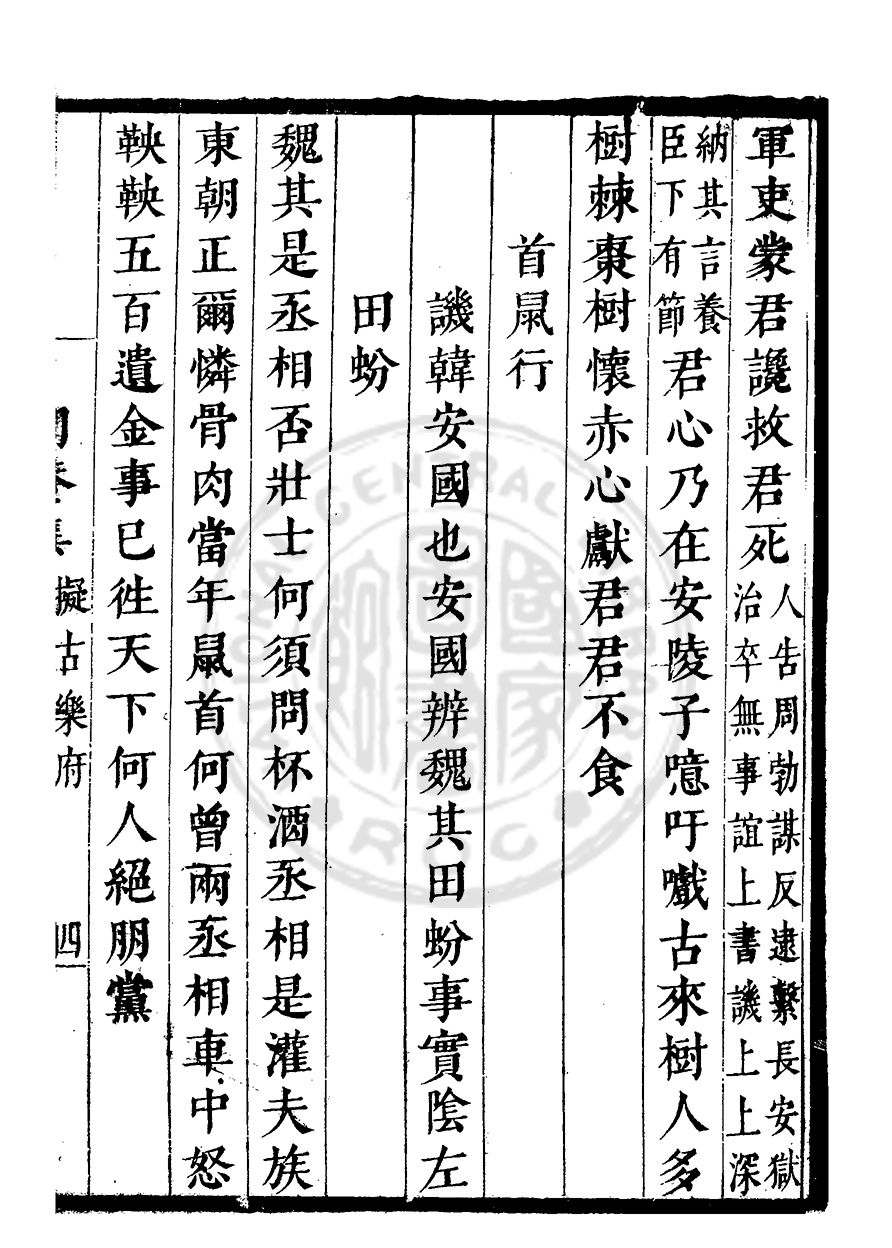 軍吏蒙君讒救君死人告周勃謀反逮繫長安獄治卒無事誼上書譏上上深
納其言養臣下有節君心乃在安陵子噫吁嚱古來樹人多
樹棘棗樹懷赤心獻君君不食
首鼠行
譏韓安國也安國辨魏其田蚡事實陰左
田蚡
魏其是丞相否壯士何須問杯酒丞相是灌夫族
東朝正爾憐骨肉當年鼠首何曾兩丞相車中怒
鞅鞅五百遺金事已徃天下何人絕朋黨
擬古樂府 四
CENTRAL